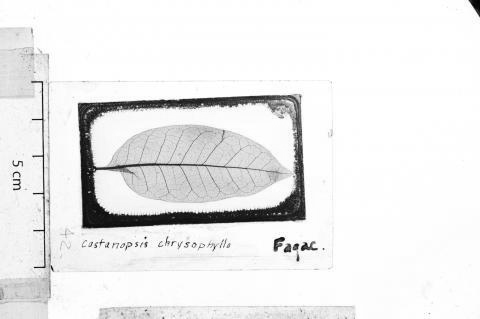 5 cm
42
Castanopsis chrysophylla
Fagac.